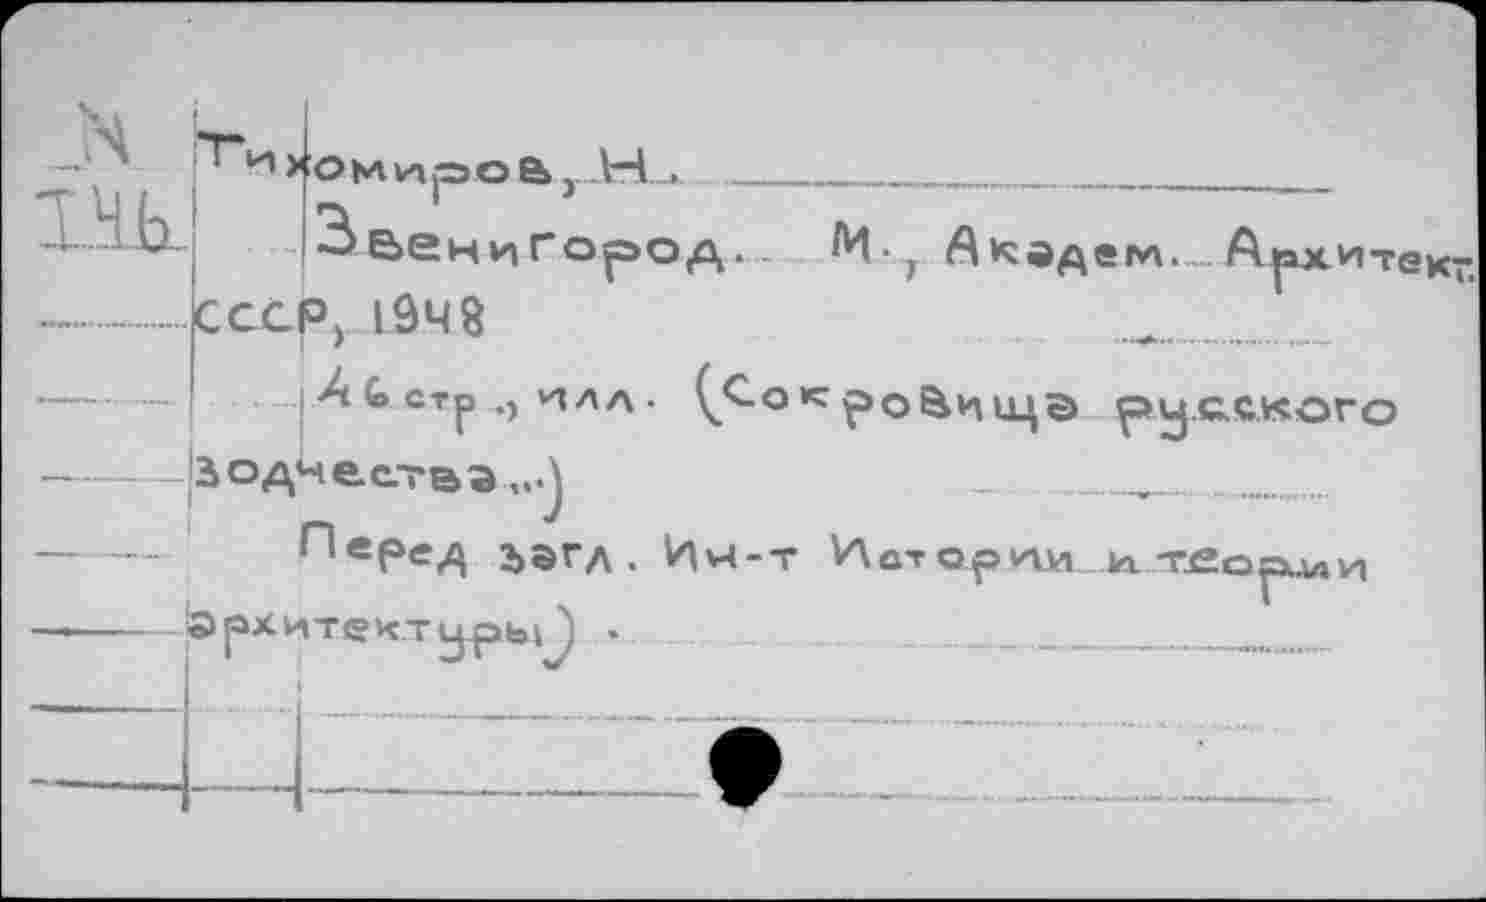 N
Т46
Тихомиров, Н.
Звенигород. М., Академ. Архитект.
СССР, 1948
46 стр., илл. (Сокровища русского
зодчества...)
Перед загл. Ин-т Истории и теории
архитектуры) .